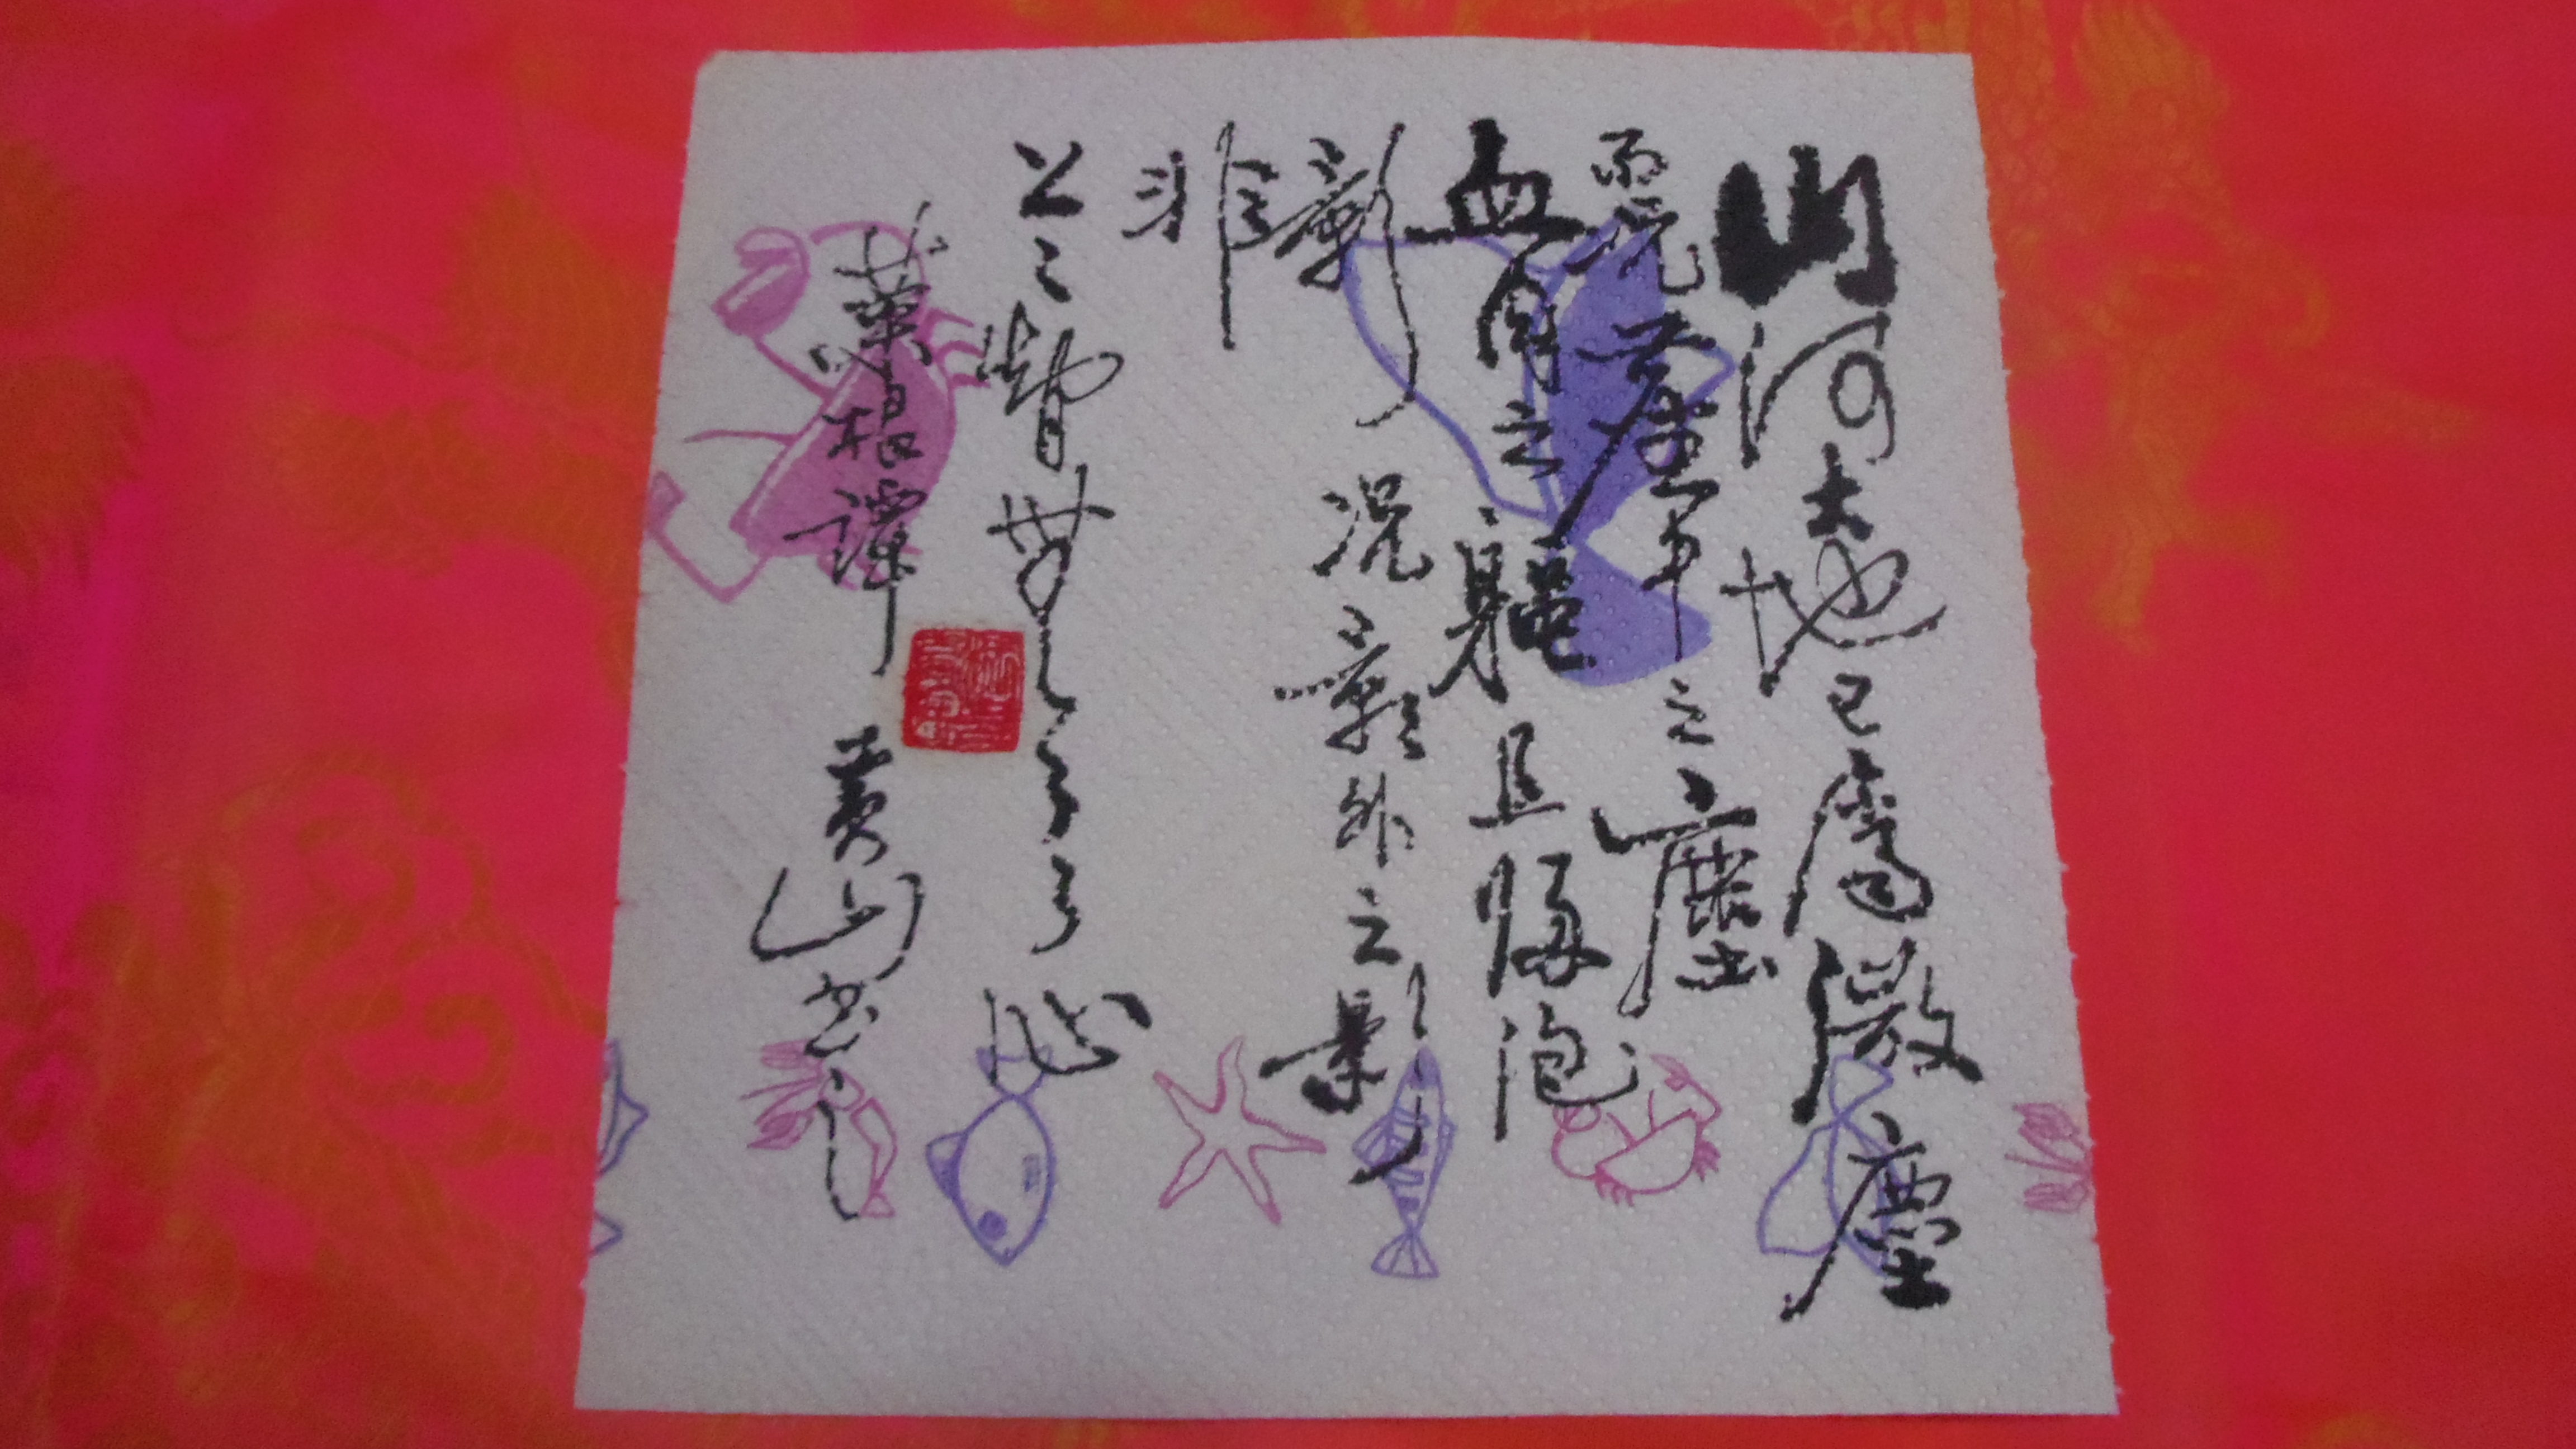 山河大地已屬微塵
而況塵中之塵
血肉之軀且歸泡
影況影外之影
非
上々智無了了心
菜根譚 黃山書